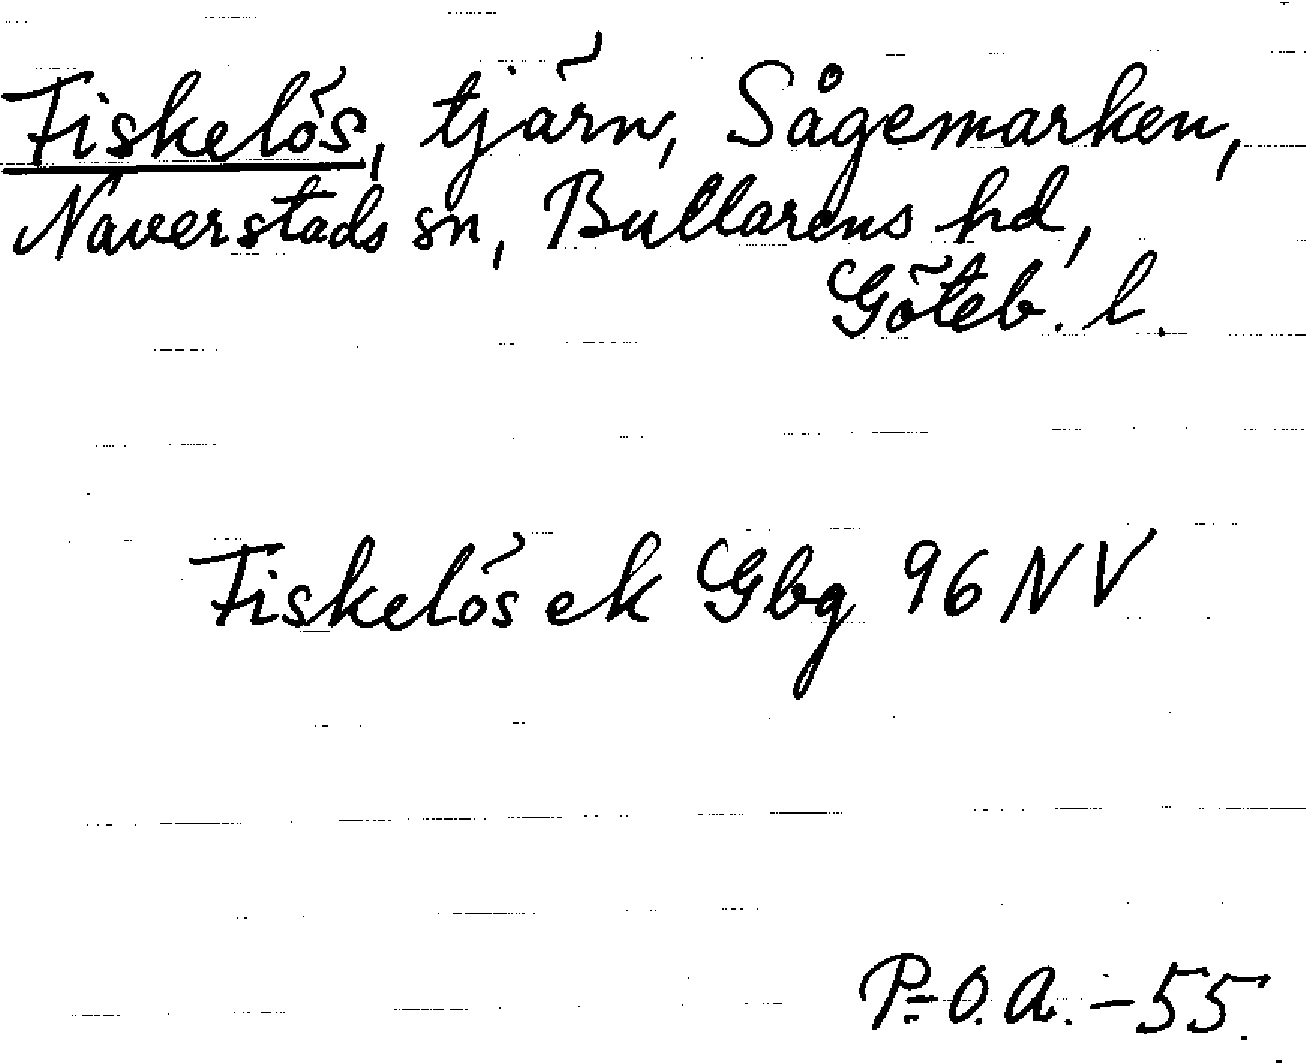 Fiskelös, tjärn, Sågemarken,
Naverstads sn, Bullarens hd,
Göteb. l.
Fiskelös ek Gbg 96 NV
P.-O.A. -55.